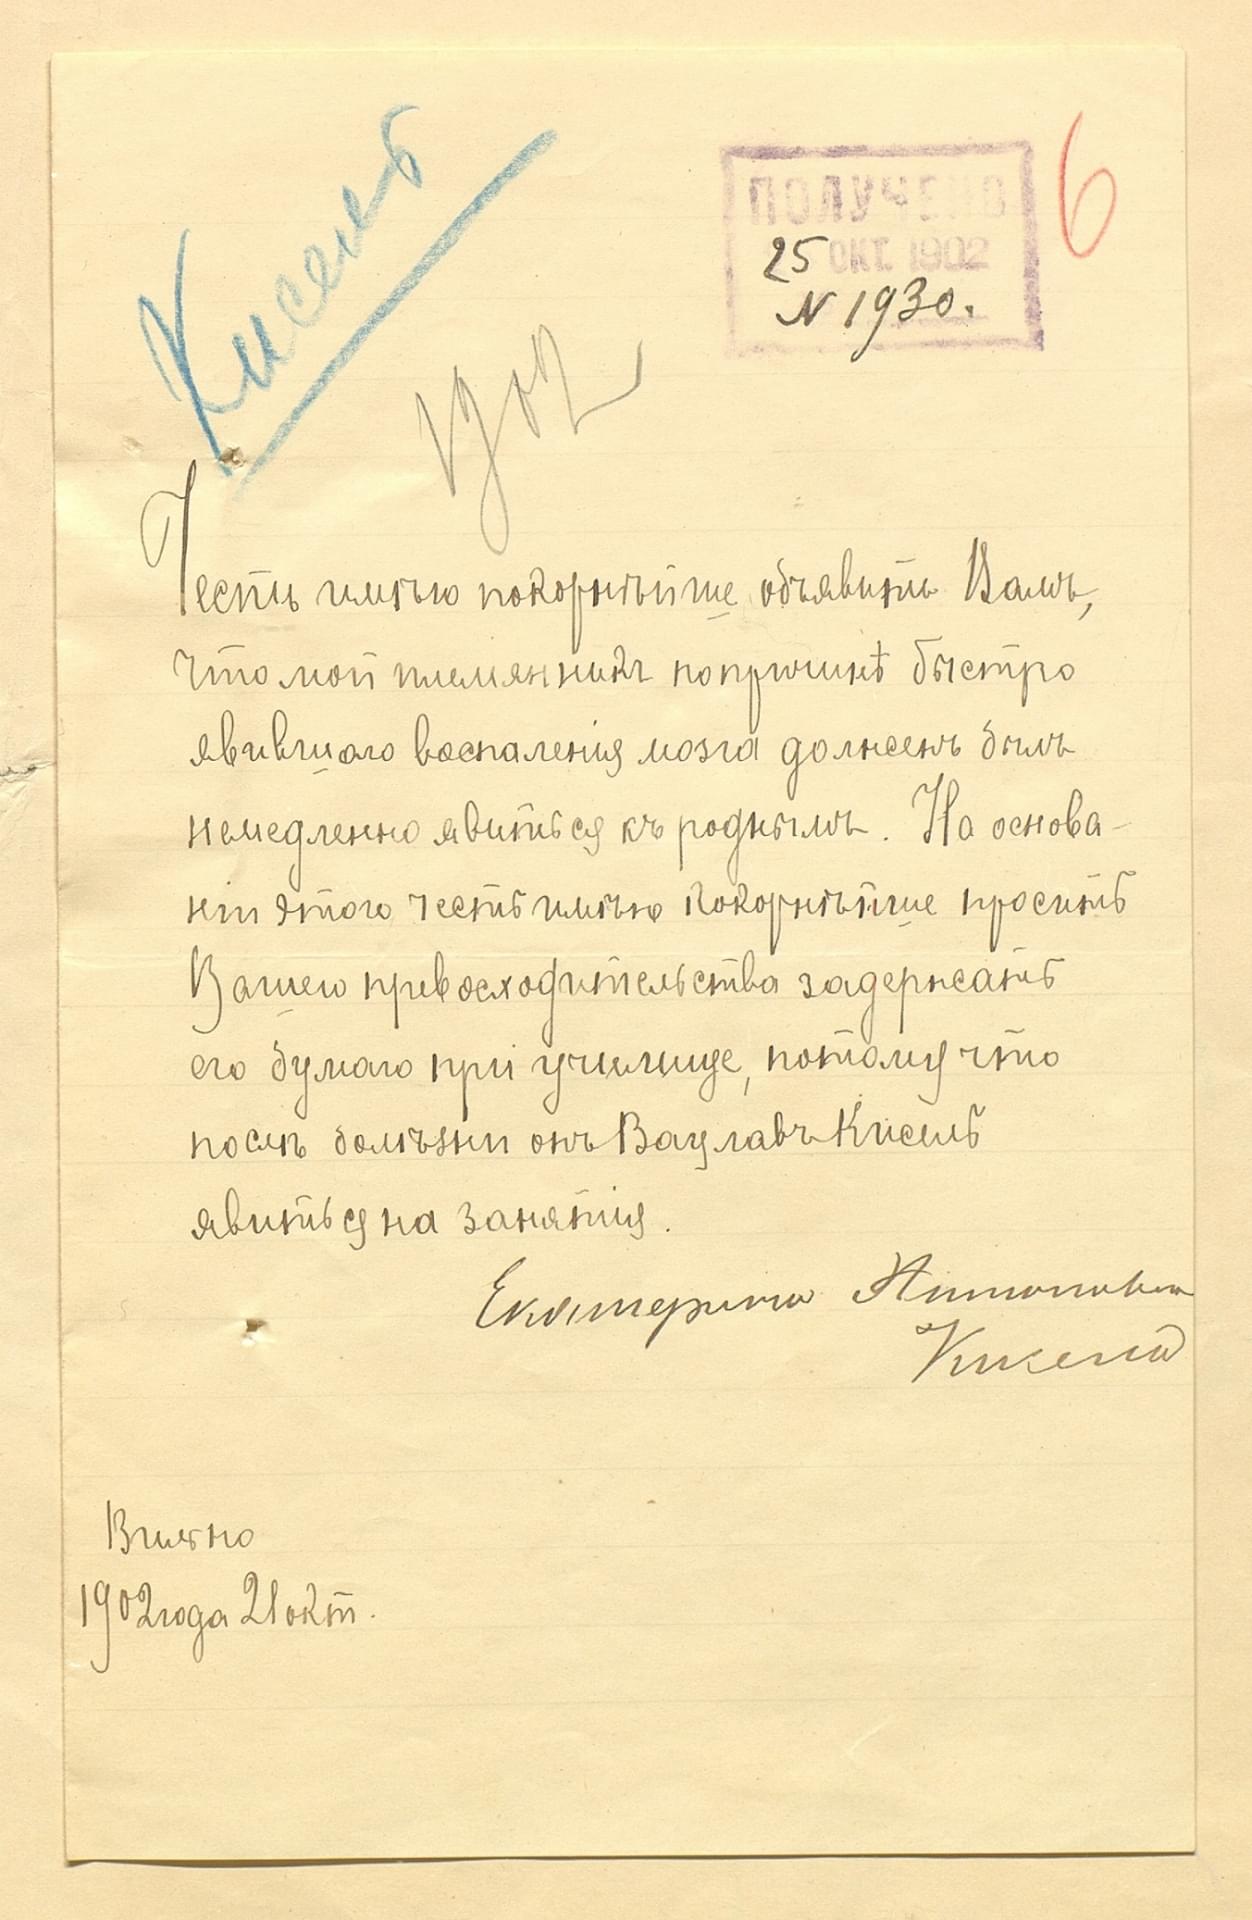 Кисель
6
ПОЛУЧЕНО
25 ОКТ. 1902
N 1930.
Честь имѣю покорнѣйше объявить Вамъ,
что мой племянникъ по причинѣ быстро
явившого воспаленія мозга долженъ былъ
немедленно явиться къ роднымъ. На основа-
ніи этого честь имѣю покорнѣйше просить
Вашего превосходительства задержать
его бумаго при училище, потому что
послѣ болѣзни онъ Вацлавъ Кисель
явиться на занятія.
Екатерина Антоновна
Кисель
Вильно
1902 года 21 окт.